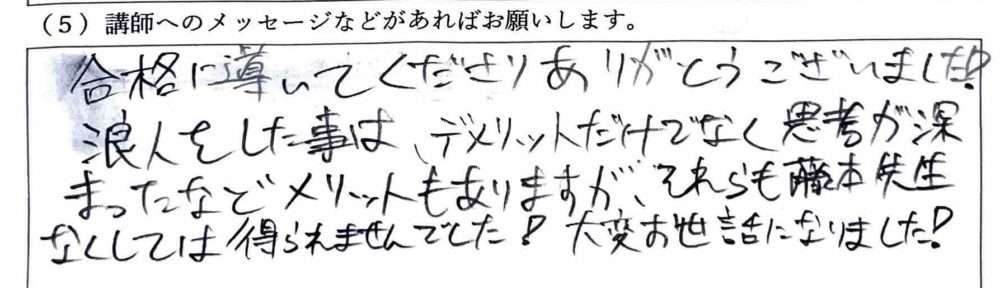 （5）講師へのメッセージなどがあればお願いします。
合格に導いてくださりありがとうございました!
浪人をした事は、デメリットだけでなく思考が深
まったなどメリットもありますが、それらも藤本先生
なくしては得られませんでした! 大変お世話になりました!